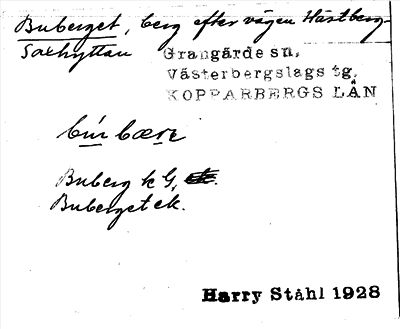 Buberget, berg efter vägen Hästberg-
Saxhyttan Grangärde sn,
Västerbergslags tg,
KOPPARBERGS LÄN
bú̱r bære
Buberg k G,
Buberget ek.
Harry Ståhl 1928